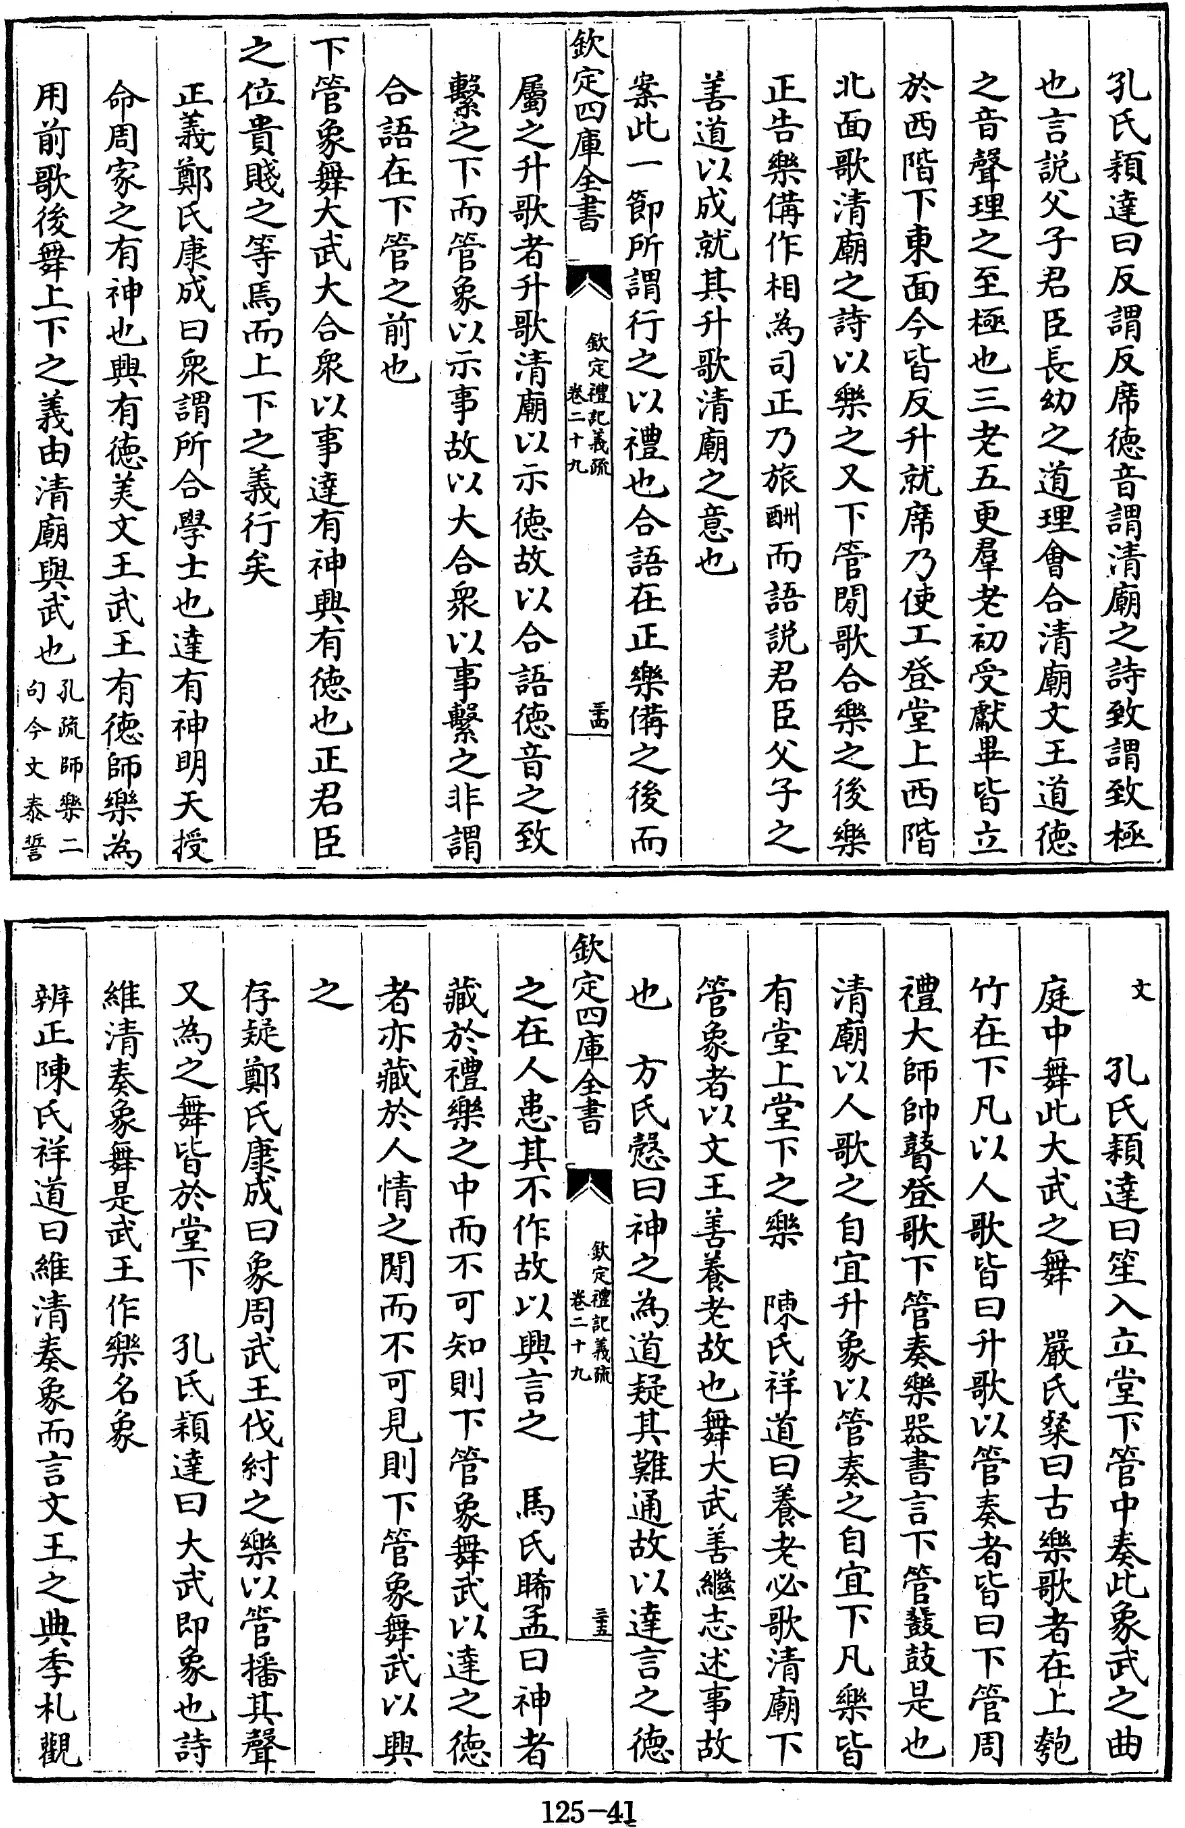 孔氏穎達曰反謂反席徳音謂清廟之詩致謂致極
也言説父子君臣長幼之道理會合清廟文王道徳
之音聲理之至極也三老五更羣老初受獻畢皆立
於西階下東面今皆反升就席乃使工登堂上西階
北面歌清廟之詩以樂之又下管閒歌合樂之後樂
正告樂備作相為司正乃旅酬而語説君臣父子之
善道以成就其升歌清廟之意也
案此一節所謂行之以禮也合語在正樂備之後而
欽定四庫全書
欽定禮記義疏
卷二十九
三十四
屬之升歌者升歌清廟以示徳故以合語徳音之致
繫之下而管象以示事故以大合衆以事繫之非謂
合語在下管之前也
下管象舞大武大合衆以事達有神興有徳也正君臣
之位貴賤之等焉而上下之義行矣
正義鄭氏康成曰衆謂所合學士也達有神明天授
命周家之有神也興有徳美文王武王有徳師樂為
用前歌後舞上下之義由清廟與武也孔疏師樂二
句今文泰誓
文　孔氏穎達曰笙入立堂下管中奏此象武之曲
庭中舞此大武之舞　嚴氏粲曰古樂歌者在上匏
竹在下凡以人歌皆曰升歌以管奏者皆曰下管周
禮大師帥瞽登歌下管奏樂器書言下管鼗鼓是也
清廟以人歌之自宜升象以管奏之自宜下凡樂皆
有堂上堂下之樂　陳氏祥道曰養老必歌清廟下
管象者以文王善養老故也舞大武善繼志述事故
也　方氏慤曰神之為道疑其難通故以達言之徳
欽定四庫全書
欽定禮記義疏
卷二十九
三十五
之在人患其不作故以興言之　馬氏晞孟曰神者
藏於禮樂之中而不可知則下管象舞武以達之徳
者亦藏於人情之閒而不可見則下管象舞武以興
之
存疑鄭氏康成曰象周武王伐紂之樂以管播其聲
又為之舞皆於堂下　孔氏穎達曰大武即象也詩
維清奏象舞是武王作樂名象
辨正陳氏祥道曰維清奏象而言文王之典季札觀
125-41